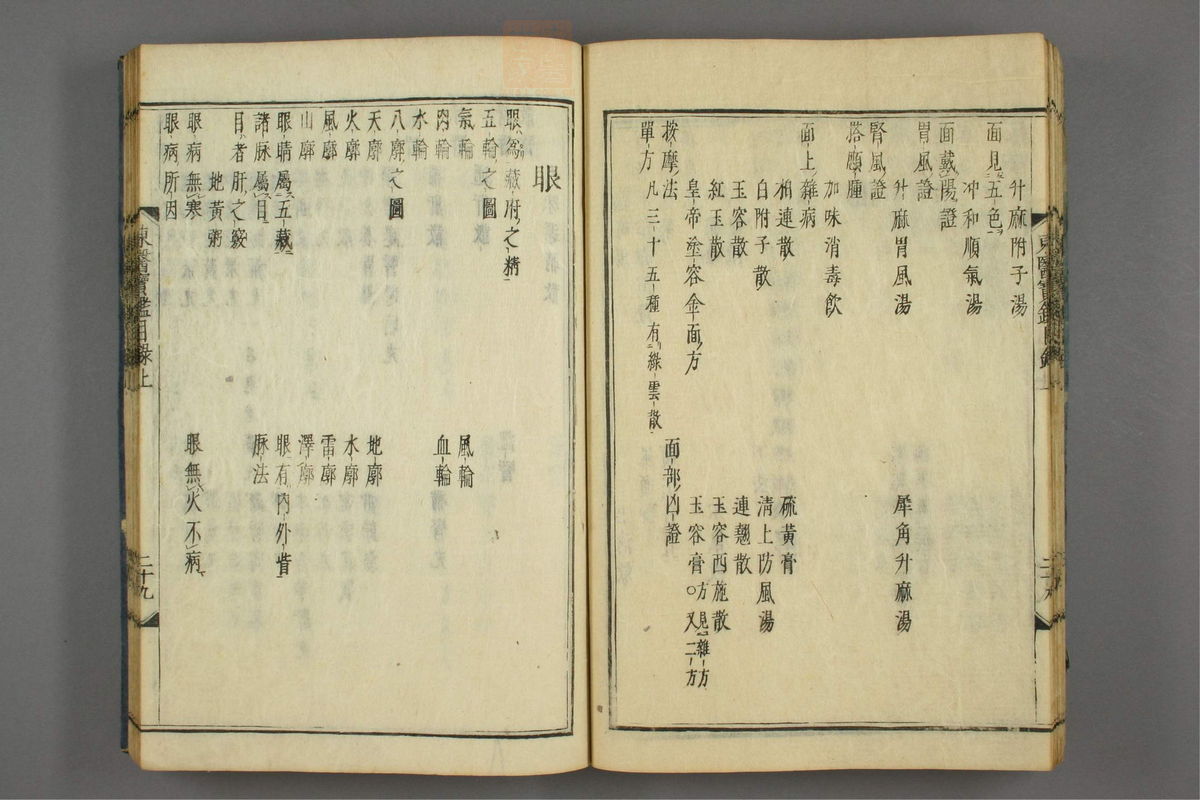 升麻附子湯
面見五色
冲和順氣湯
面戴陽證
胃風證
升麻胃風湯
犀角升麻湯
腎風證
痄腮腫
加味消毒飲
面上雜病
柏連散
硫黃膏
白附子散
淸上防風湯
玉容散
連翹散
紅玉散
玉容西施散
皇帝塗容金面方
玉容膏方見雜方○又二方
按摩法
面部凶證
單方凡三十五種有綠雲散
東醫寶鑑目錄上
二十九
眼
眼爲藏府之精
五輪之圖
氣輪
風輪
肉輪
血輪
水輪
八廓之圖
天廓
地廓
火廓
水廓
風廓
雷廓
山廓
澤廓
眼睛屬五藏
眼有內外眥
諸脉屬目
脉法
目者肝之竅
地黃粥
眼病無寒
眼無火不病
眼病所因
東醫寶鑑目錄上
二十九